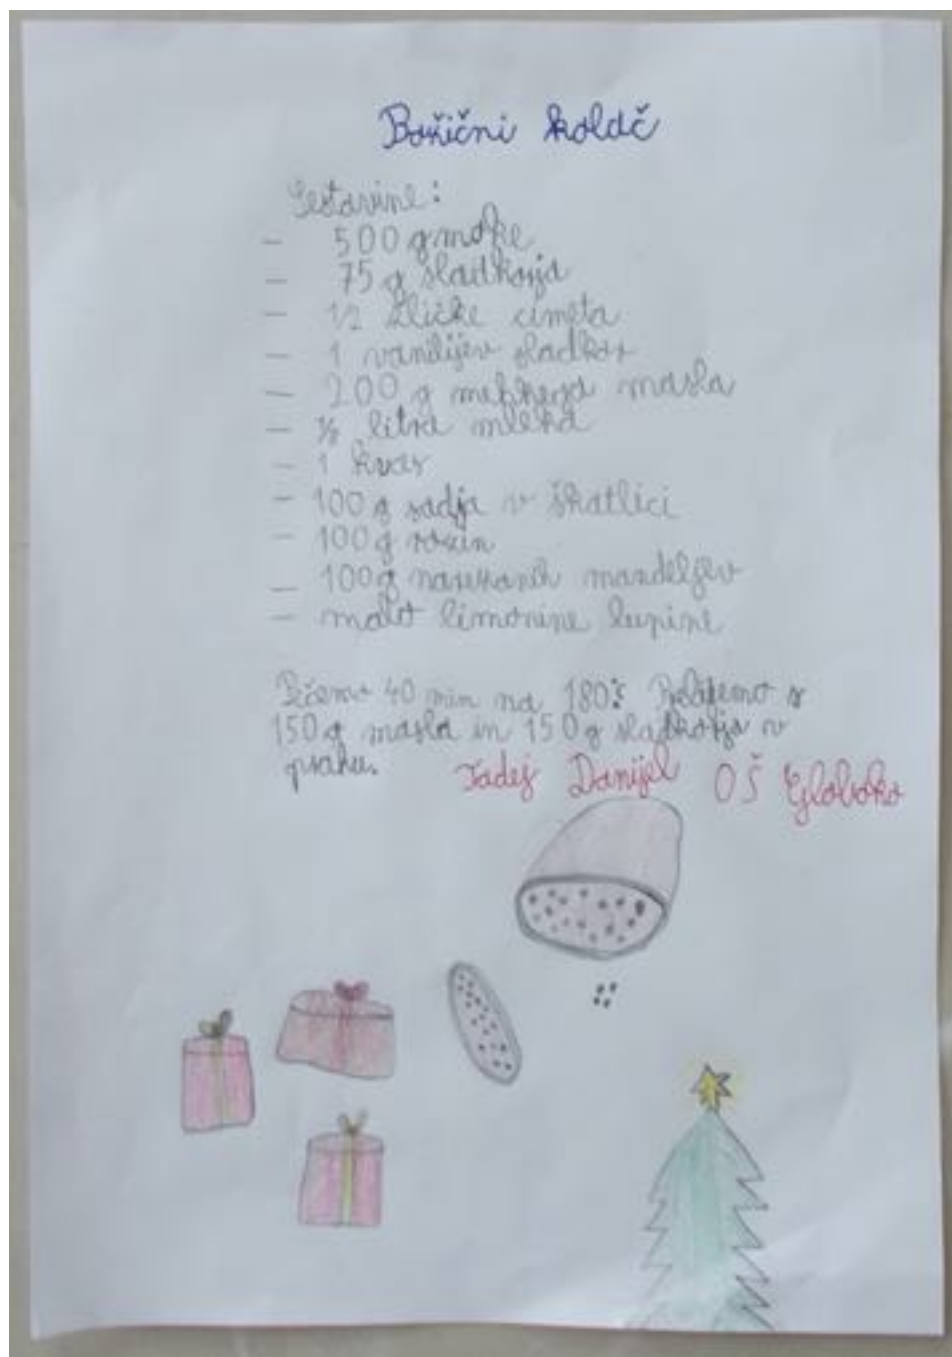 Božični kolač
Sestavine:
- 500 g moke
- 75 g sladkorja
- 1/2 žličke cimeta
- 1 vanilijev sladkor
- 200 g mehkega masla
- litra mleka
- 1 kvas
- 100 g sadja v škatlici
- 100 g rozin
- 100 g narezanih mandeljev
- malo limonine lupine
Pečemo 40 min na 180°C
150 g masla in 150 g sladkorja v
prahu.
Tadej Danijel OŠ Globoko